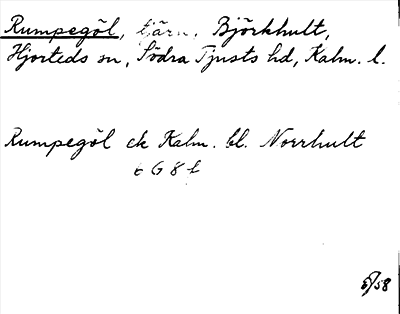 Rumpegöl, tjärn, Björkhult,
Hjorteds sn, Södra Tjusts hd, Kalm. l.
Rumpegöl ek Kalm. bl. Norrhult
6 G 8 f
5/58